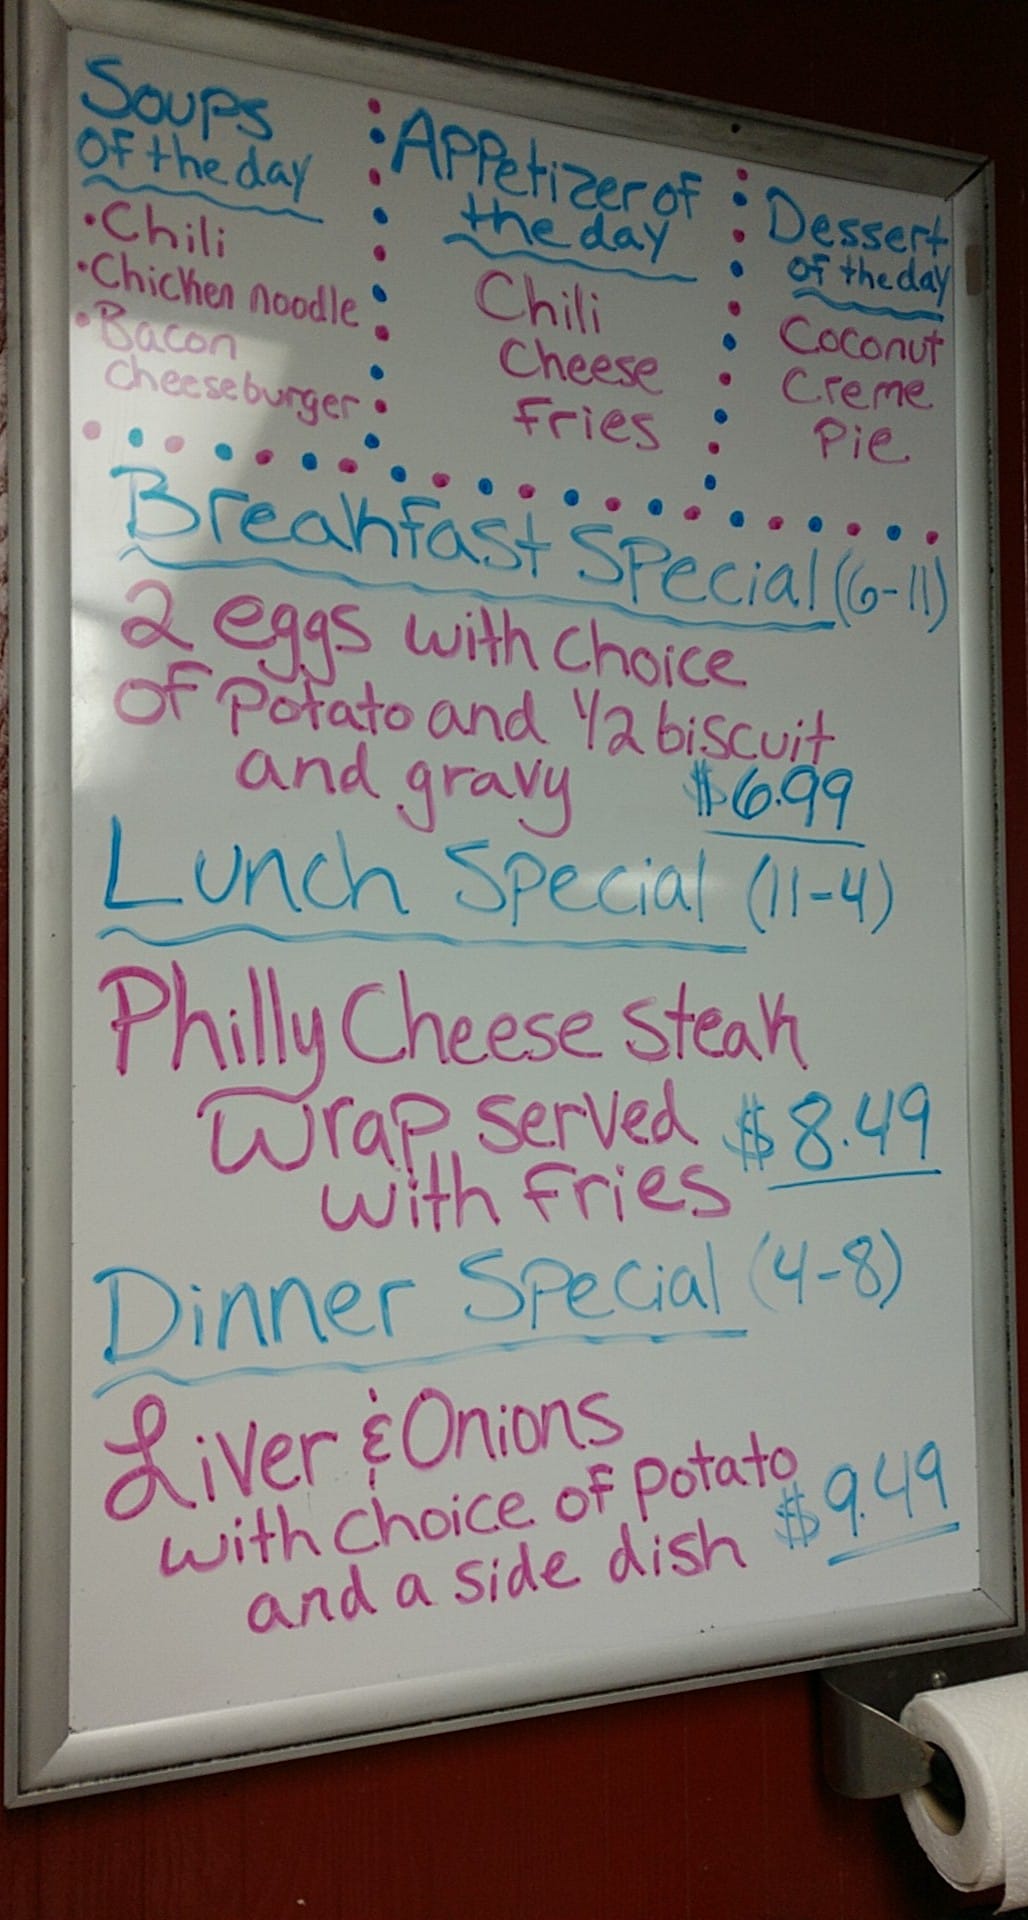 Soups
of the day
• Chili
• Chicken noodle
• Bacon
cheeseburger
Appetizer of
the day
Chili
Cheese
Fries
Dessert
of the day
Coconut
Creme
Pie
Breakfast Special (6-11)
2 eggs with choice
of potato and 1/2 biscuit
and gravy $6.99
Lunch Special (11-4)
Philly Cheese steak
wrap served $8.49
with fries
Dinner Special (4-8)
Liver & Onions
with choice of potato
and a side dish $9.49